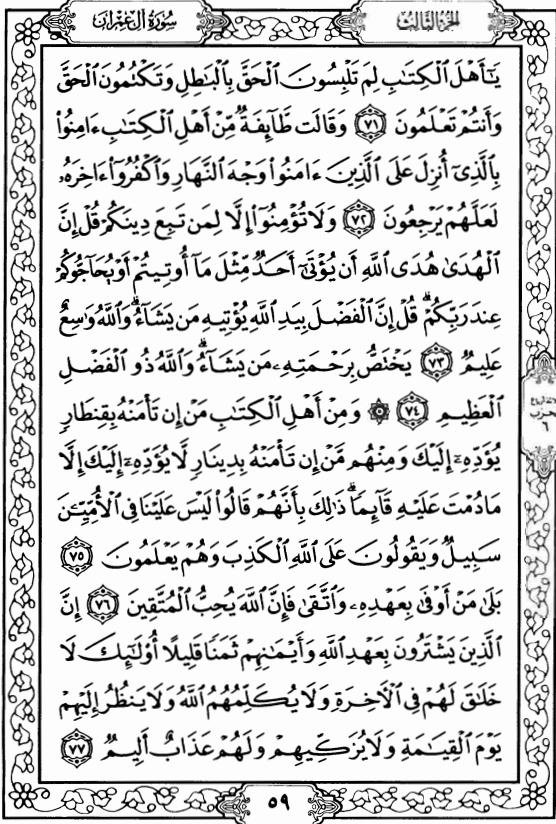 سُورَةُ آلِ عِمْرَان
الجُزْءُ الثَّالِثُ
يَـٰٓأَهْلَ ٱلْكِتَـٰبِ لِمَ تَلْبِسُونَ ٱلْحَقَّ بِٱلْبَـٰطِلِ وَتَكْتُمُونَ ٱلْحَقَّ
وَأَنتُمْ تَعْلَمُونَ ٧١ وَقَالَت طَّآئِفَةٌ مِّنْ أَهْلِ ٱلْكِتَـٰبِ ءَامِنُوا۟
بِٱلَّذِىٓ أُنزِلَ عَلَى ٱلَّذِينَ ءَامَنُوا۟ وَجْهَ ٱلنَّهَارِ وَٱكْفُرُوٓا۟ ءَاخِرَهُۥ
لَعَلَّهُمْ يَرْجِعُونَ ٧٢ وَلَا تُؤْمِنُوٓا۟ إِلَّا لِمَن تَبِعَ دِينَكُمْ قُلْ إِنَّ
ٱلْهُدَىٰ هُدَى ٱللَّهِ أَن يُؤْتَىٰٓ أَحَدٌ مِّثْلَ مَآ أُوتِيتُمْ أَوْ يُحَآجُّوكُمْ
عِندَ رَبِّكُمْ ۗ قُلْ إِنَّ ٱلْفَضْلَ بِيَدِ ٱللَّهِ يُؤْتِيهِ مَن يَشَآءُ ۗ وَٱللَّهُ وَٰسِعٌ
عَلِيمٌ ٧٣ يَخْتَصُّ بِرَحْمَتِهِۦ مَن يَشَآءُ ۗ وَٱللَّهُ ذُو ٱلْفَضْلِ
ٱلْعَظِيمِ ٧٤ ۞ وَمِنْ أَهْلِ ٱلْكِتَـٰبِ مَنْ إِن تَأْمَنْهُ بِقِنطَارٍ
يُؤَدِّهِۦٓ إِلَيْكَ وَمِنْهُم مَّنْ إِن تَأْمَنْهُ بِدِينَارٍ لَّا يُؤَدِّهِۦٓ إِلَيْكَ إِلَّا
مَا دُمْتَ عَلَيْهِ قَآئِمًا ۗ ذَٰلِكَ بِأَنَّهُمْ قَالُوا۟ لَيْسَ عَلَيْنَا فِى ٱلْأُمِّيِّـۧنَ
سَبِيلٌ وَيَقُولُونَ عَلَى ٱللَّهِ ٱلْكَذِبَ وَهُمْ يَعْلَمُونَ ٧٥
بَلَىٰ مَنْ أَوْفَىٰ بِعَهْدِهِۦ وَٱتَّقَىٰ فَإِنَّ ٱللَّهَ يُحِبُّ ٱلْمُتَّقِينَ ٧٦ إِنَّ
ٱلَّذِينَ يَشْتَرُونَ بِعَهْدِ ٱللَّهِ وَأَيْمَـٰنِهِمْ ثَمَنًا قَلِيلًا أُو۟لَـٰٓئِكَ لَا
خَلَـٰقَ لَهُمْ فِى ٱلْـَٔاخِرَةِ وَلَا يُكَلِّمُهُمُ ٱللَّهُ وَلَا يَنظُرُ إِلَيْهِمْ
يَوْمَ ٱلْقِيَـٰمَةِ وَلَا يُزَكِّيهِمْ وَلَهُمْ عَذَابٌ أَلِيمٌ ٧٧
الحزب
٦
٥٩